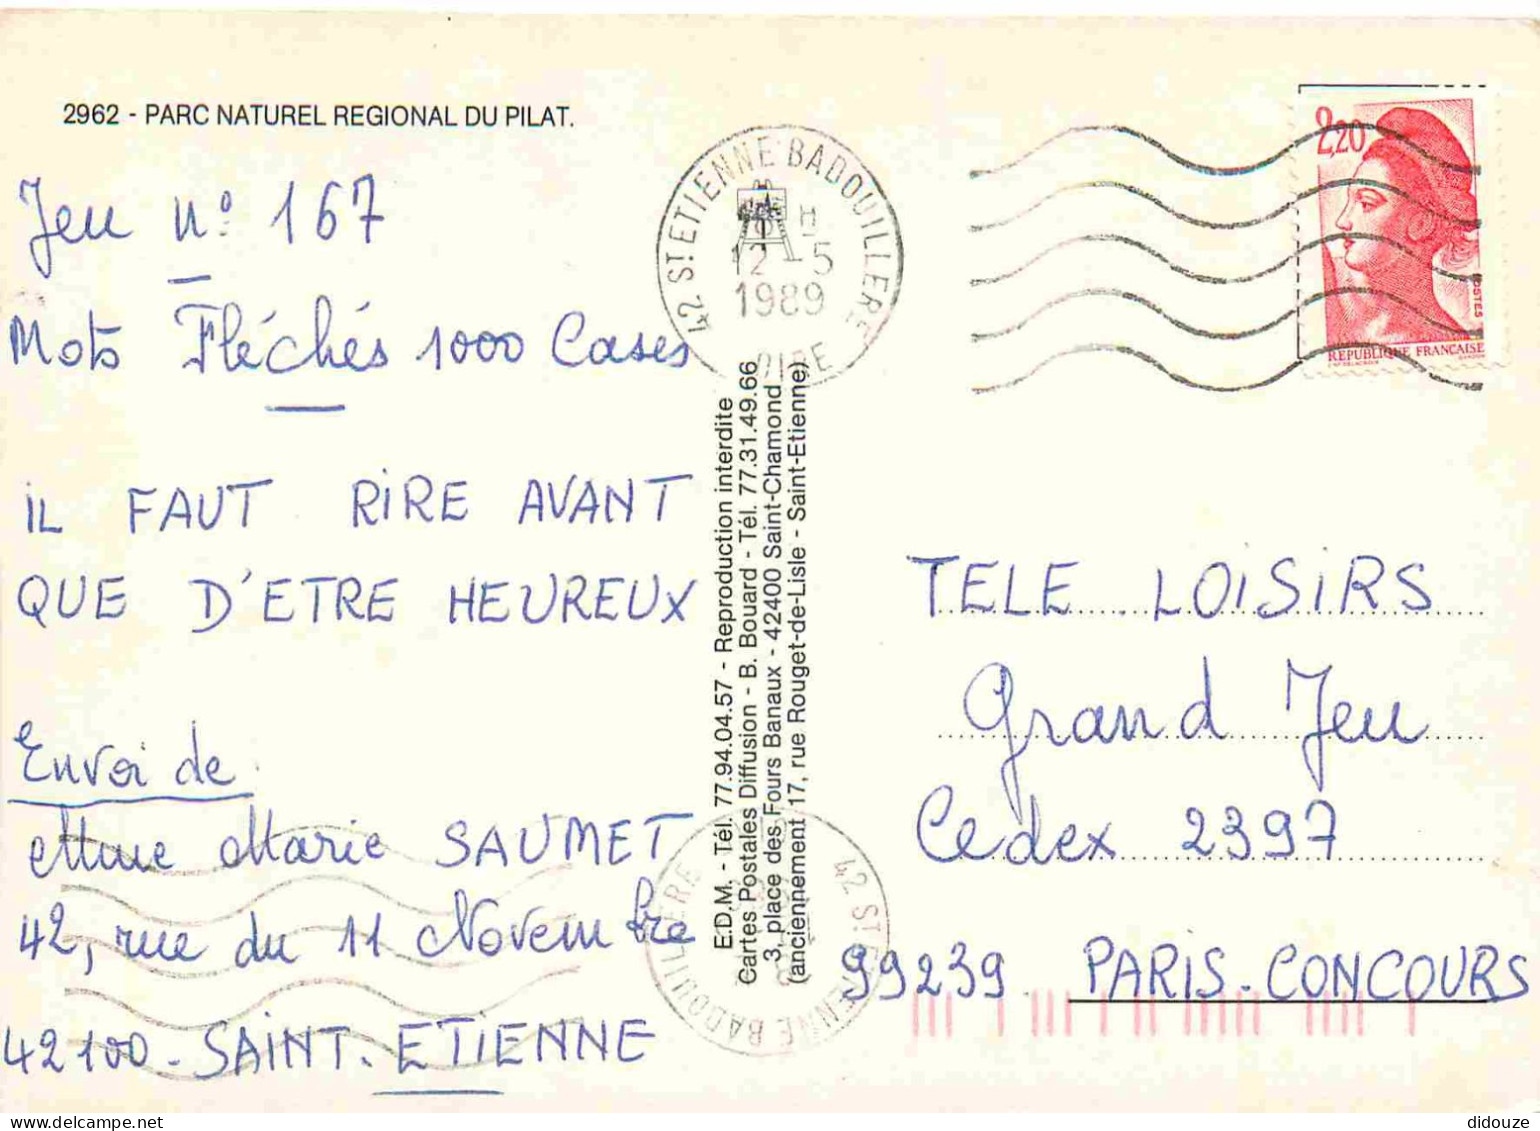 2962 - PARC NATUREL REGIONAL DU PILAT.
Jeu n° 167
Mots Fléchés 1000 Cases
IL FAUT RIRE AVANT
QUE D'ETRE HEUREUX
Envoi de
Mme Marie SAUMET
42, rue du 11 Novembre
42100 - SAINT-ETIENNE
42 ST ETIENNE BADOUILLERE
H
12-5
1989
LOIRE
E.D.M. - Tél. 77.94.04.57 - Reproduction interdite
Cartes Postales Diffusion - B. Bouard - Tél. 77.31.49.66
3, place des Fours Banaux - 42400 Saint-Chamond
(anciennement 17, rue Rouget-de-Lisle - Saint-Etienne)
2,20
POSTES
REPUBLIQUE FRANCAISE
TELE LOISIRS
Grand Jeu
Cedex 2397
99239 PARIS-CONCOURS
42 ST ETIENNE BADOUILLERE
delcampe.net
didouze